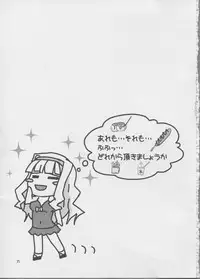 あれも…それも…
ふふっ…
どれから頂きましょうか